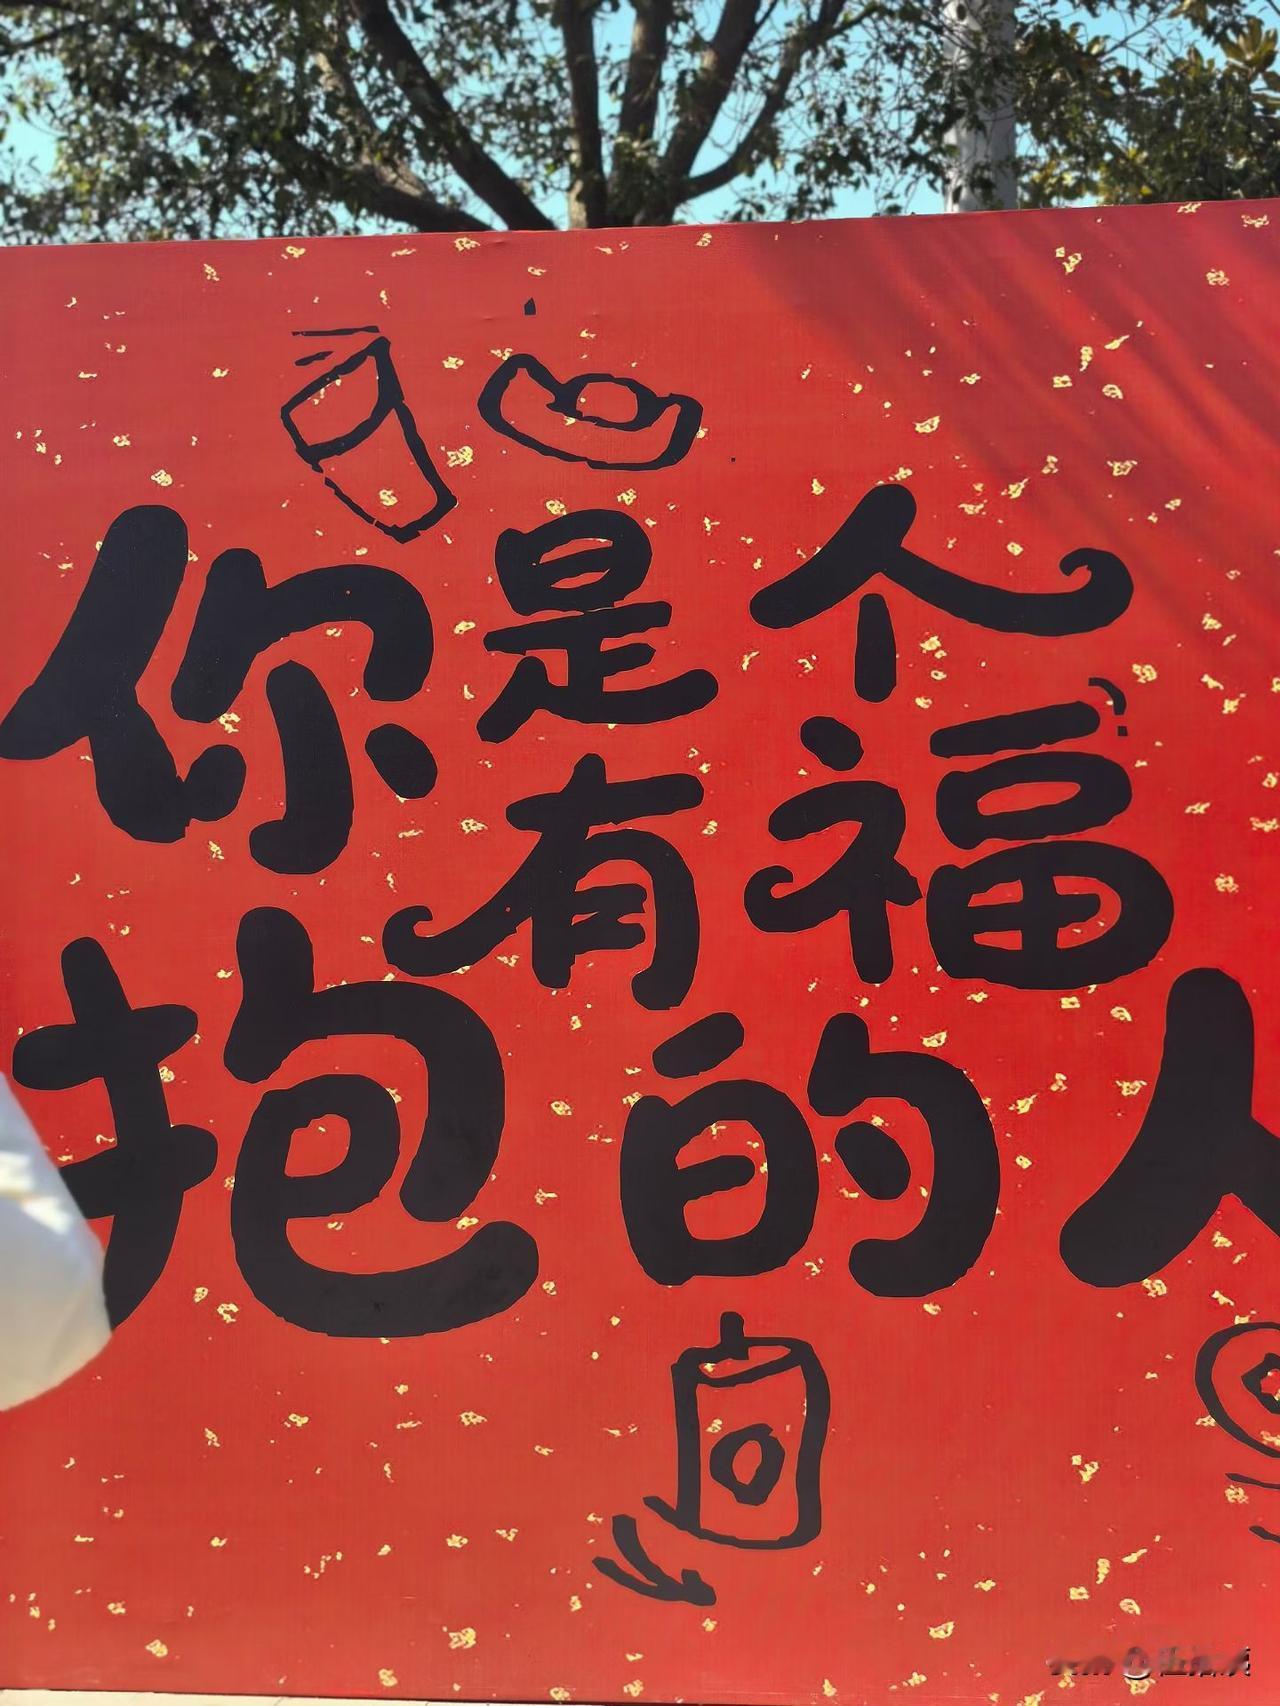 你是个
有福
抱的人